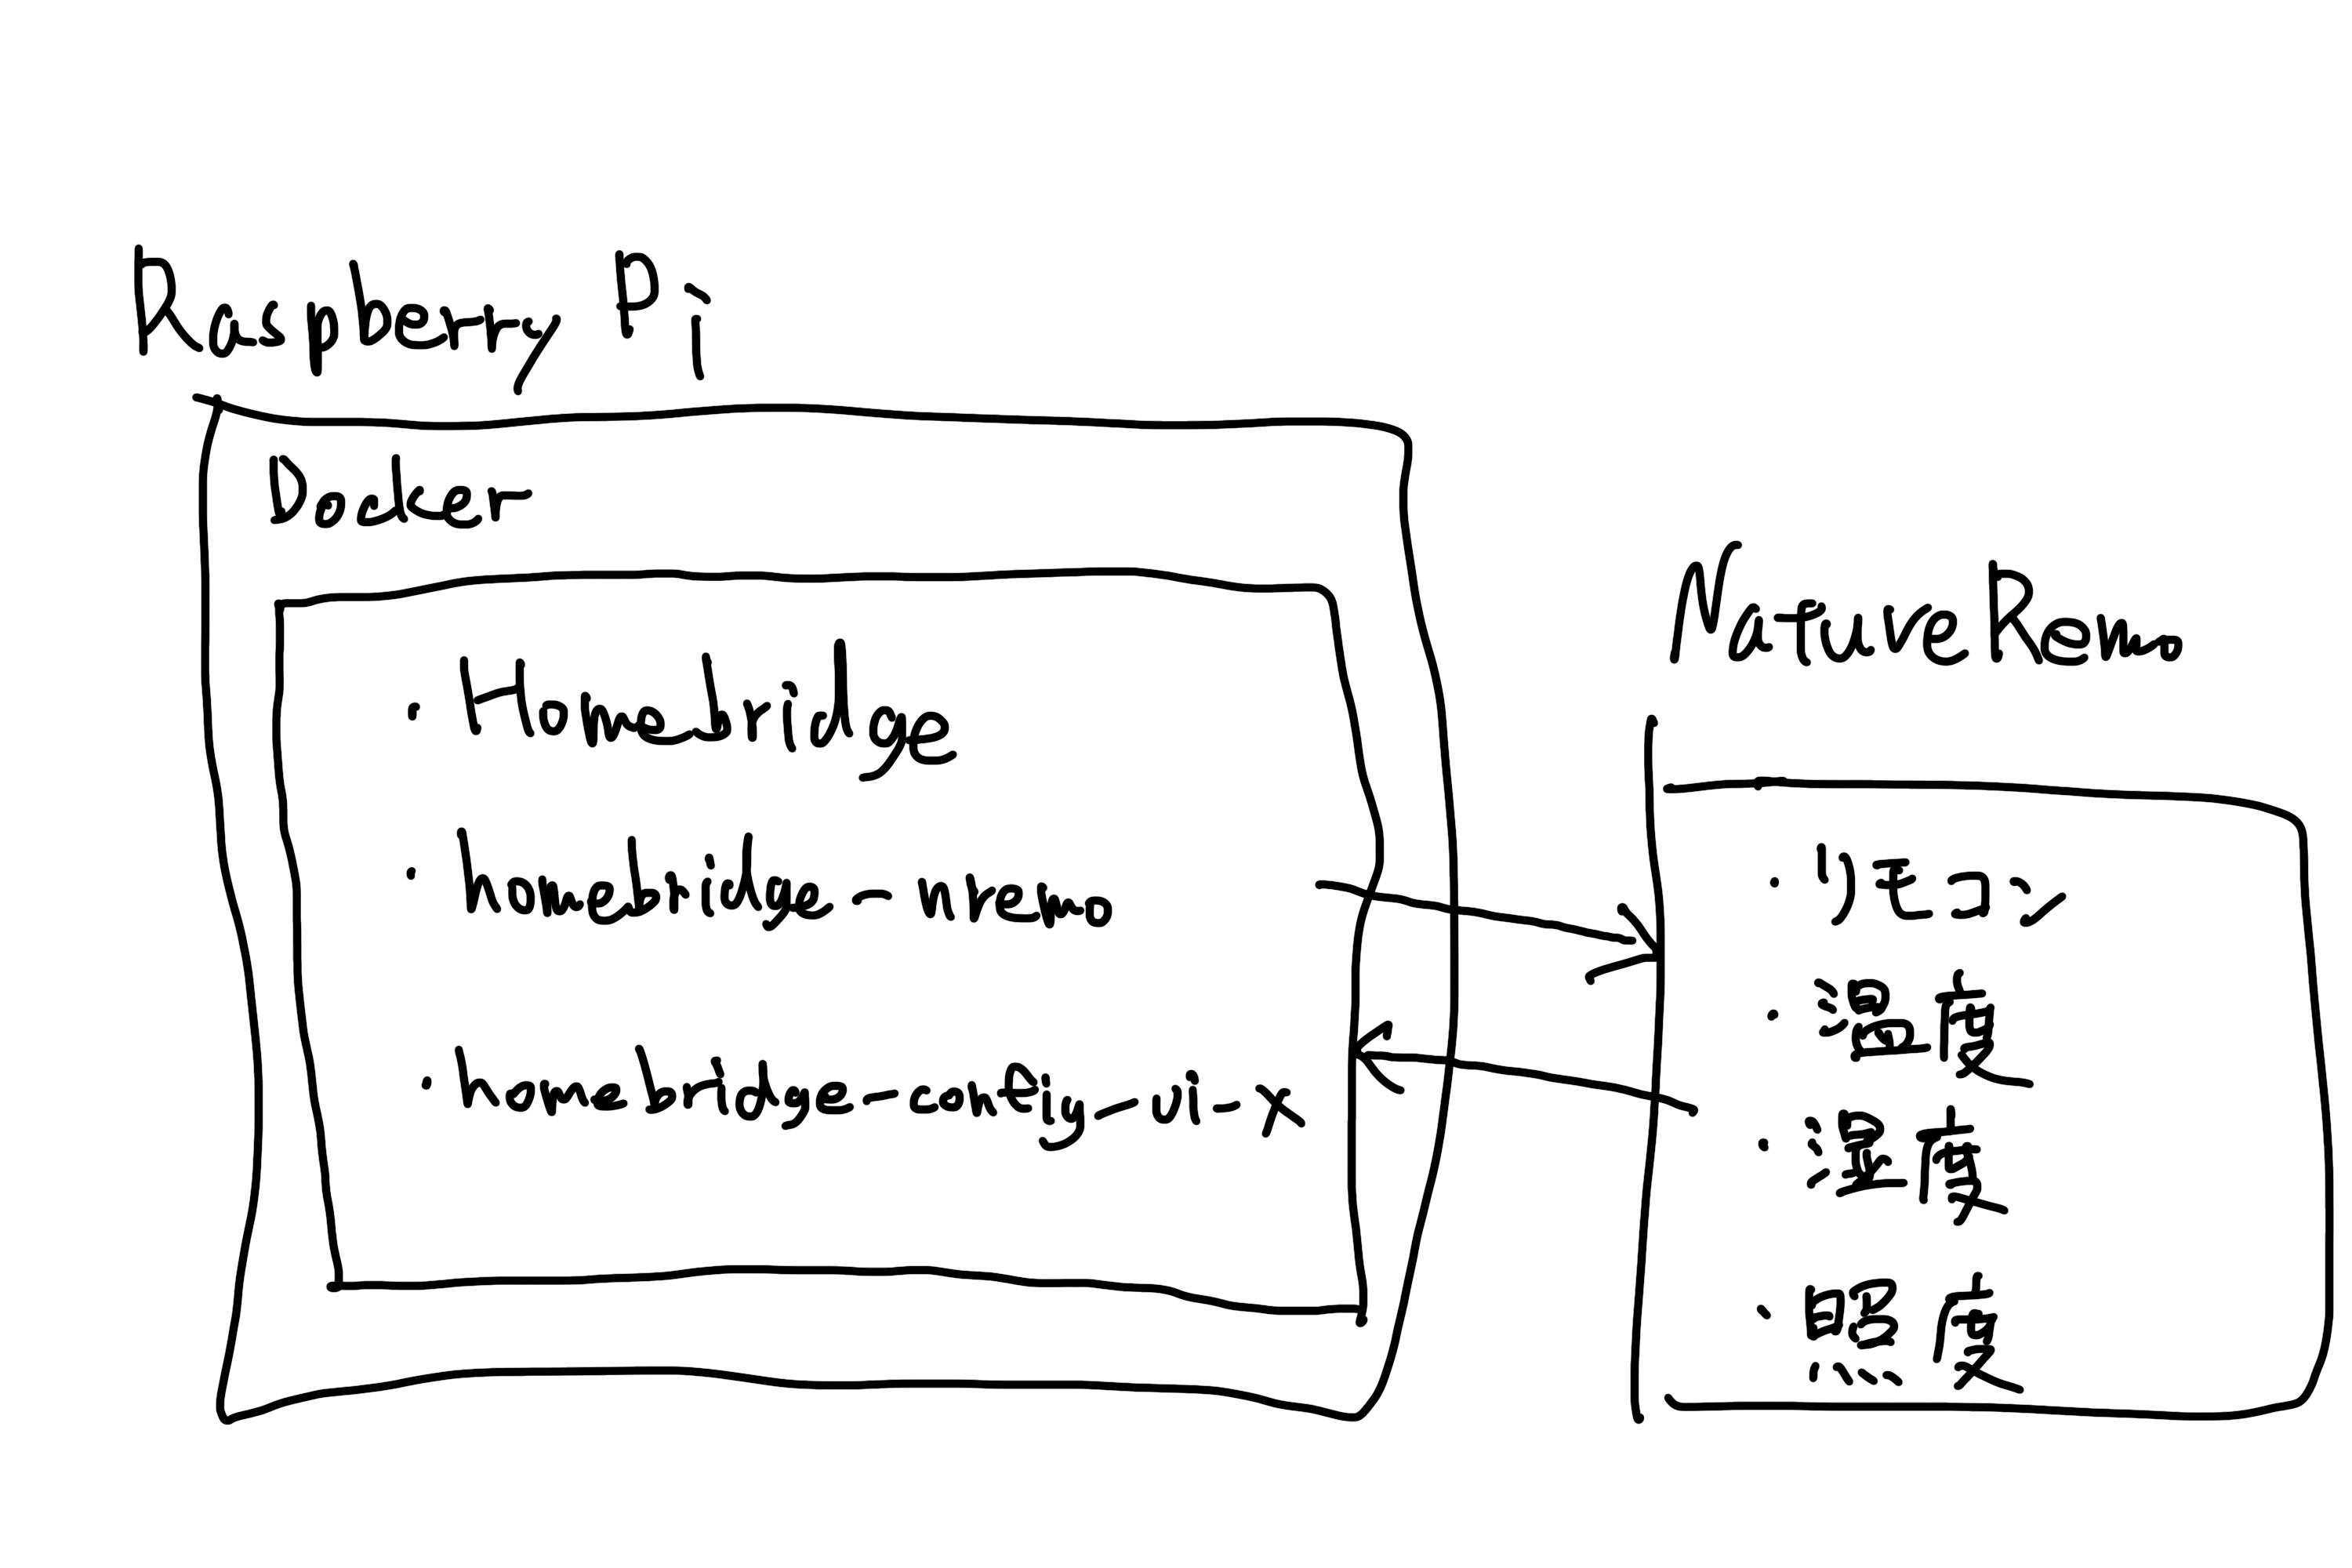 Raspberry Pi
Docker
・Homebridge
・homebridge-nremo
・homebridge-config-ui-x
Nature Remo
・リモコン
・温度
・湿度
・照度